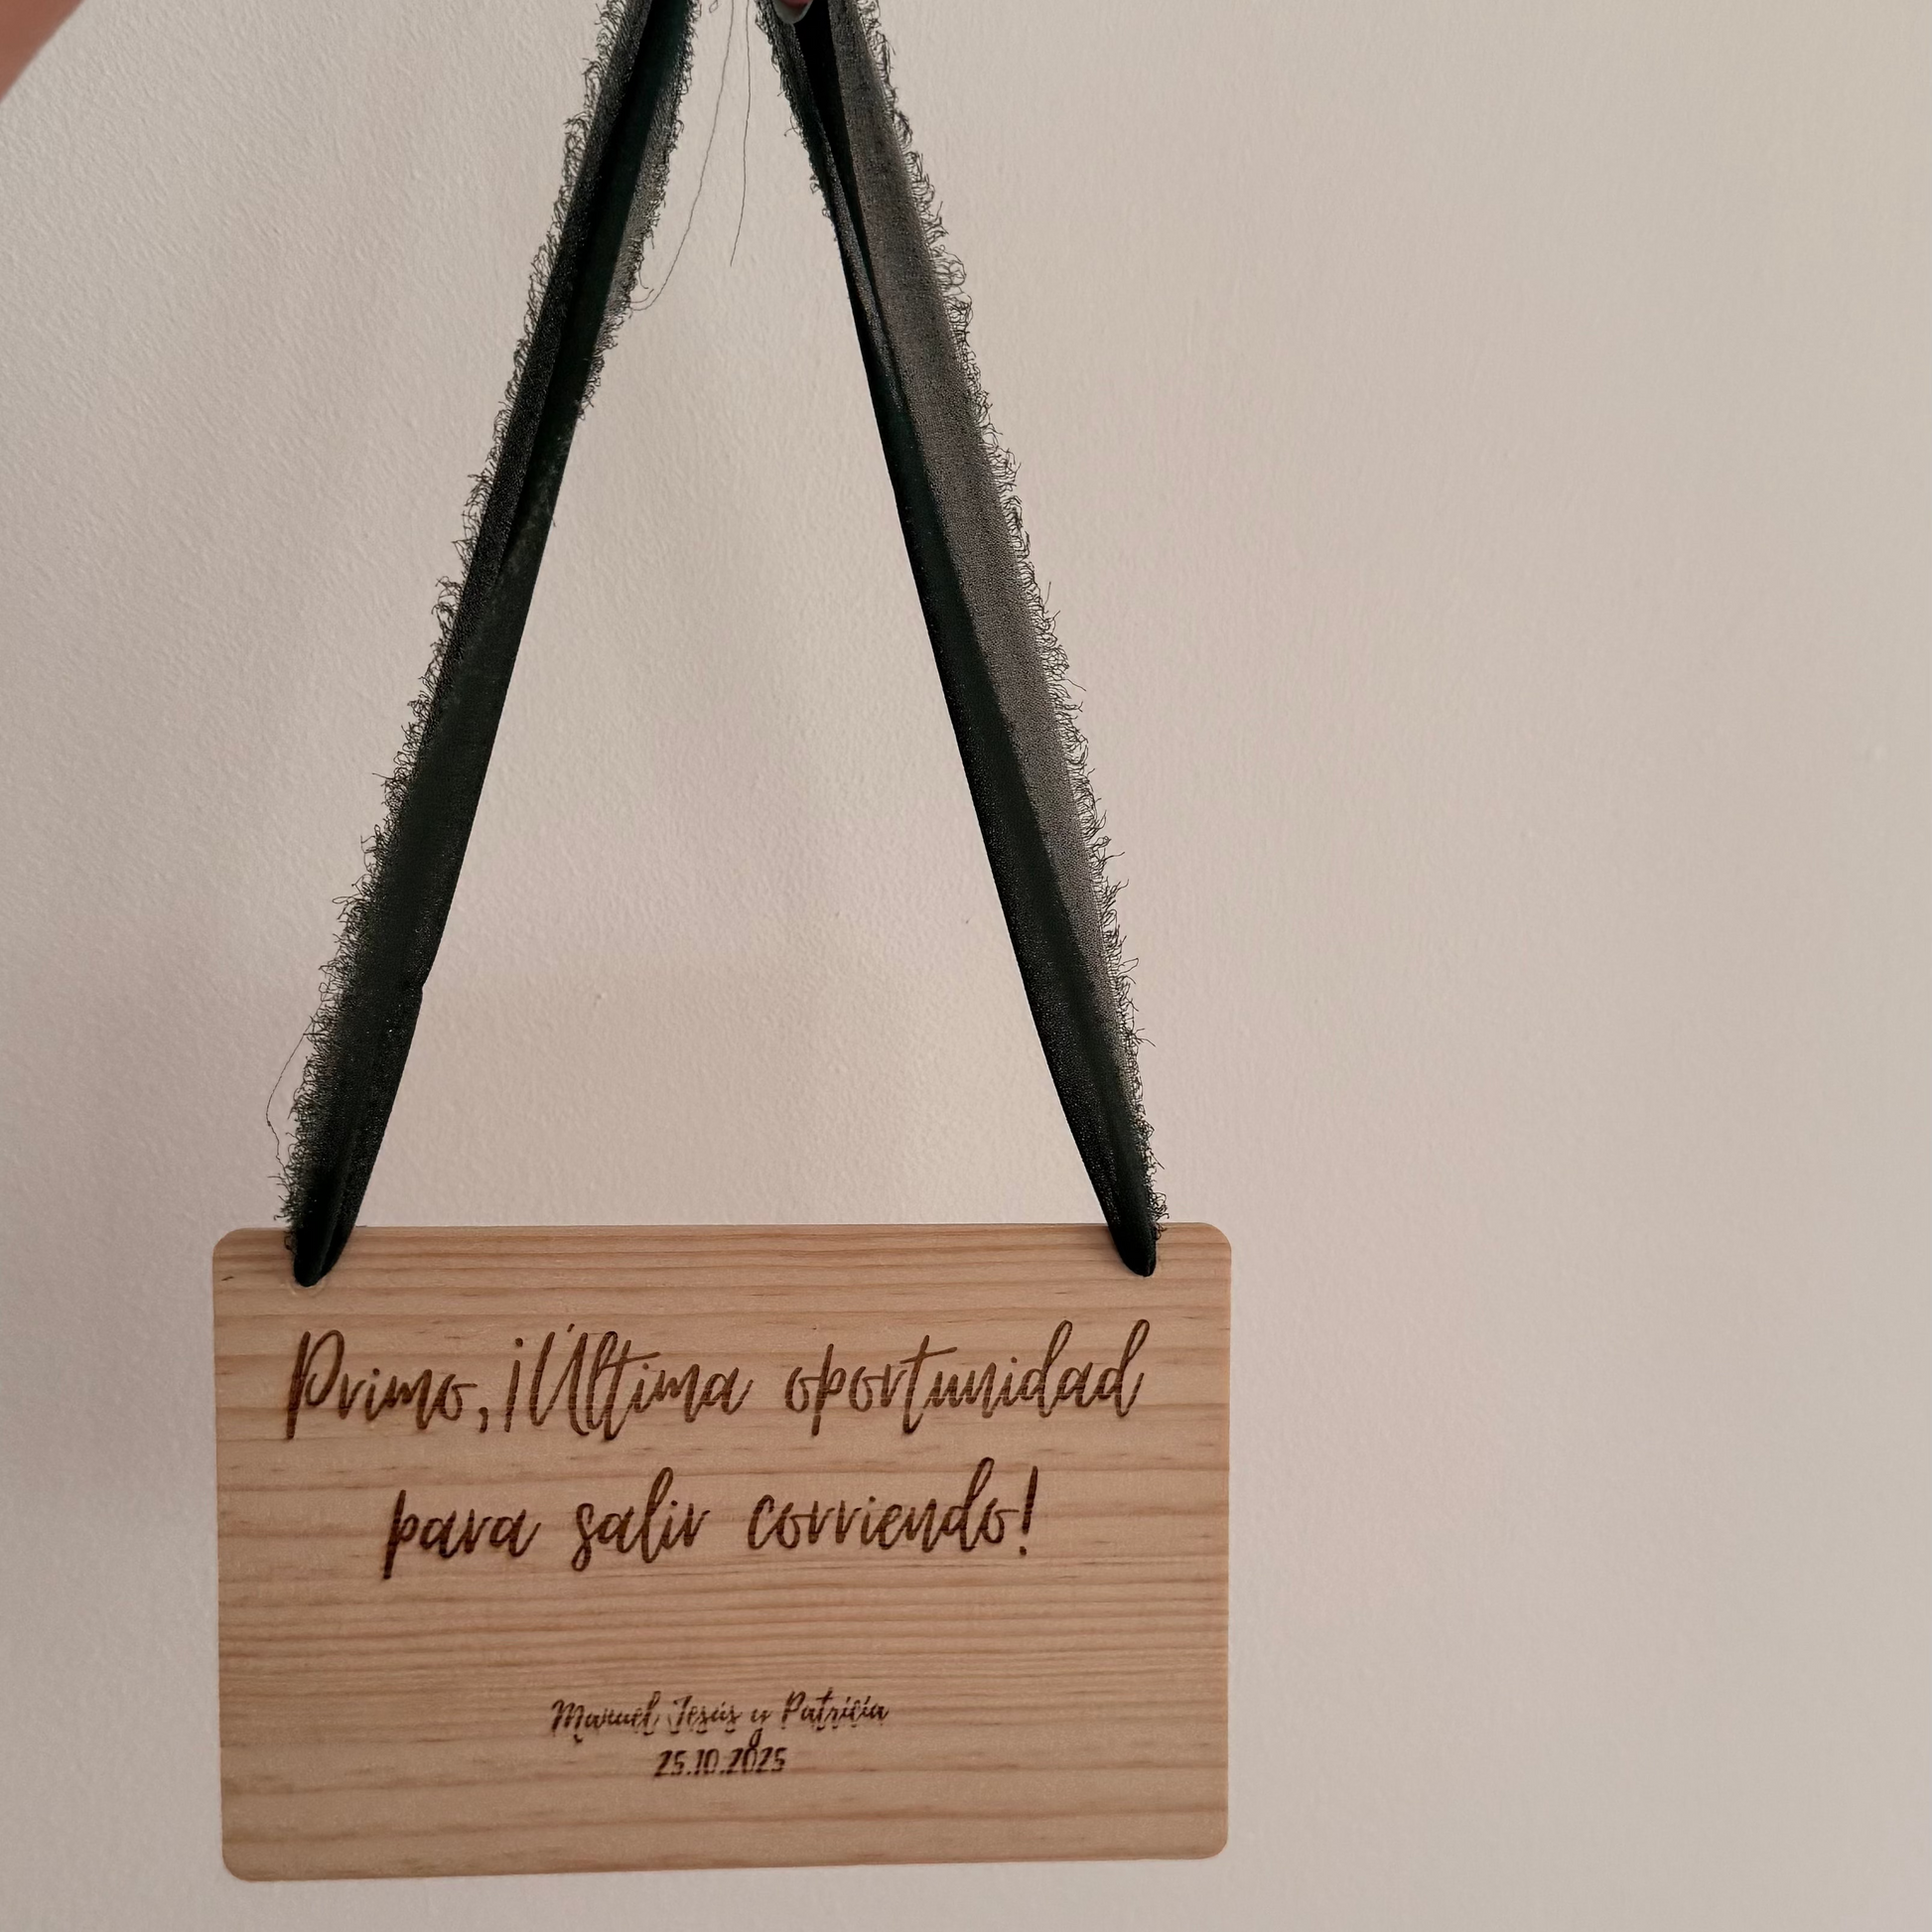 Primo, ¡Última oportunidad
para salir corriendo!
Manuel Jesús y Patricia
25.10.2025